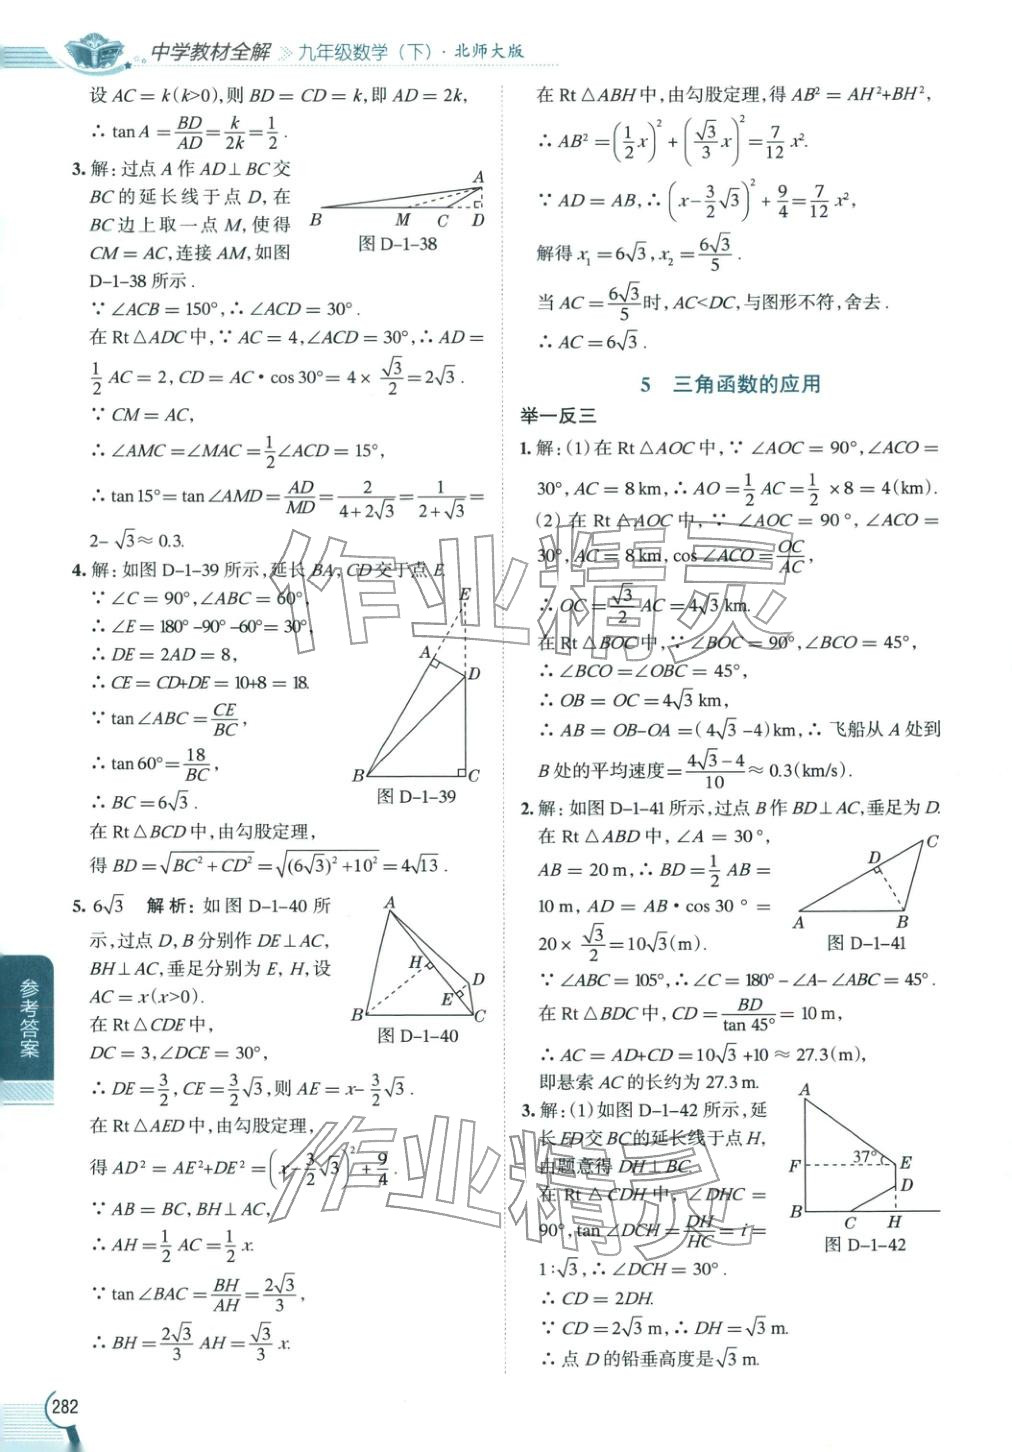 中学教材全解 九年级数学（下）·北师大版
设 AC = k(k>0),则 BD = CD = k,即 AD = 2k,
∴ tan A = BD/AD = k/2k = 1/2 .
3. 解:过点 A 作 AD⊥BC交
BC 的延长线于点 D,在
BC 边上取一点 M,使得
CM = AC,连接 AM,如图
D-1-38 所示 .
A
B M C D
图 D-1-38
∵ ∠ACB = 150°,∴ ∠ACD = 30° .
在 Rt△ADC 中,∵ AC = 4,∠ACD = 30°,∴ AD =
1/2 AC = 2, CD = AC·cos 30°= 4 × √3/2 = 2√3 .
∵ CM = AC,
∴ ∠AMC =∠MAC = 1/2 ∠ACD = 15°,
∴ tan 15°= tan∠AMD = AD/MD = 2/(4+2√3) = 1/(2+√3) =
2- √3 ≈ 0.3.
4. 解:如图 D-1-39 所示,延长 BA, CD 交于点 E.
∵ ∠C = 90°,∠ABC = 60°,
∴ ∠E = 180°-90°-60°= 30°,
∴ DE = 2AD = 8,
∴ CE = CD+DE = 10+8 = 18.
∵ tan∠ABC = CE/BC,
∴ tan 60°= 18/BC,
∴ BC = 6√3 .
E
A
D
B C
图 D-1-39
在 Rt△BCD 中,由勾股定理,
得 BD = √(BC²+CD²) = √((6√3)²+10²) = 4√13 .
5. 6√3 解析:如图 D-1-40 所
示,过点 D, B 分别作 DE⊥AC,
BH⊥AC,垂足分别为 E, H,设
AC = x(x>0).
在 Rt△CDE 中,
DC = 3,∠DCE = 30°,
A
H
D
E
B C
图 D-1-40
∴ DE = 3/2, CE = 3/2 √3,则 AE = x- 3/2 √3 .
在 Rt△AED 中,由勾股定理,
得 AD² = AE²+DE² = (x- 3/2 √3)² + 9/4 .
∵ AB = BC, BH⊥AC,
∴ AH = 1/2 AC = 1/2 x.
∵ tan∠BAC = BH/AH = 2√3/3,
∴ BH = 2√3/3 AH = √3/3 x.
在 Rt△ABH 中,由勾股定理,得 AB² = AH²+BH²,
∴ AB² = (1/2 x)² + (√3/3 x)² = 7/12 x².
∵ AD = AB,∴ (x- 3/2 √3)² + 9/4 = 7/12 x²,
解得 x₁ = 6√3, x₂ = 6√3/5 .
当 AC = 6√3/5 时, AC<DC,与图形不符,舍去 .
∴ AC = 6√3 .
5 三角函数的应用
举一反三
1. 解:(1)在 Rt△AOC 中,∵ ∠AOC = 90°,∠ACO =
30°, AC = 8 km,∴ AO = 1/2 AC = 1/2 ×8 = 4(km).
(2)在 Rt△AOC 中,∵ ∠AOC = 90°,∠ACO =
30°, AC = 8 km, cos∠ACO = OC/AC,
∴ OC = √3/2 AC = 4√3 km.
在 Rt△BOC 中,∵ ∠BOC = 90°,∠BCO = 45°,
∴ ∠BCO =∠OBC = 45°,
∴ OB = OC = 4√3 km,
∴ AB = OB-OA =( 4√3 -4)km,∴ 飞船从 A 处到
B 处的平均速度= (4√3-4)/10 ≈ 0.3(km/s).
2. 解:如图 D-1-41 所示,过点 B 作 BD⊥AC,垂足为 D.
在 Rt△ABD 中, ∠A = 30°,
AB = 20 m,∴ BD = 1/2 AB =
10 m, AD = AB·cos 30° =
20× √3/2 = 10√3(m).
C
D
A B
图 D-1-41
∵ ∠ABC = 105°,∴ ∠C = 180°-∠A-∠ABC = 45° .
在 Rt△BDC 中, CD = BD/tan 45° = 10 m,
∴ AC = AD+CD = 10√3 +10 ≈ 27.3(m),
即悬索 AC 的长约为 27.3 m.
3. 解:(1)如图 D-1-42 所示,延
长 ED交 BC的延长线于点 H,
由题意得 DH⊥BC.
在 Rt△CDH 中, ∠DHC =
90°, tan∠DCH = DH/HC = i =
1∶√3,∴ ∠DCH = 30° .
A
F 37° E
D
B C H
图 D-1-42
∴ CD = 2DH.
∵ CD = 2√3 m,∴ DH = √3 m.
∴ 点 D 的铅垂高度是 √3 m.
参考答案
282
作业精灵
作业精灵